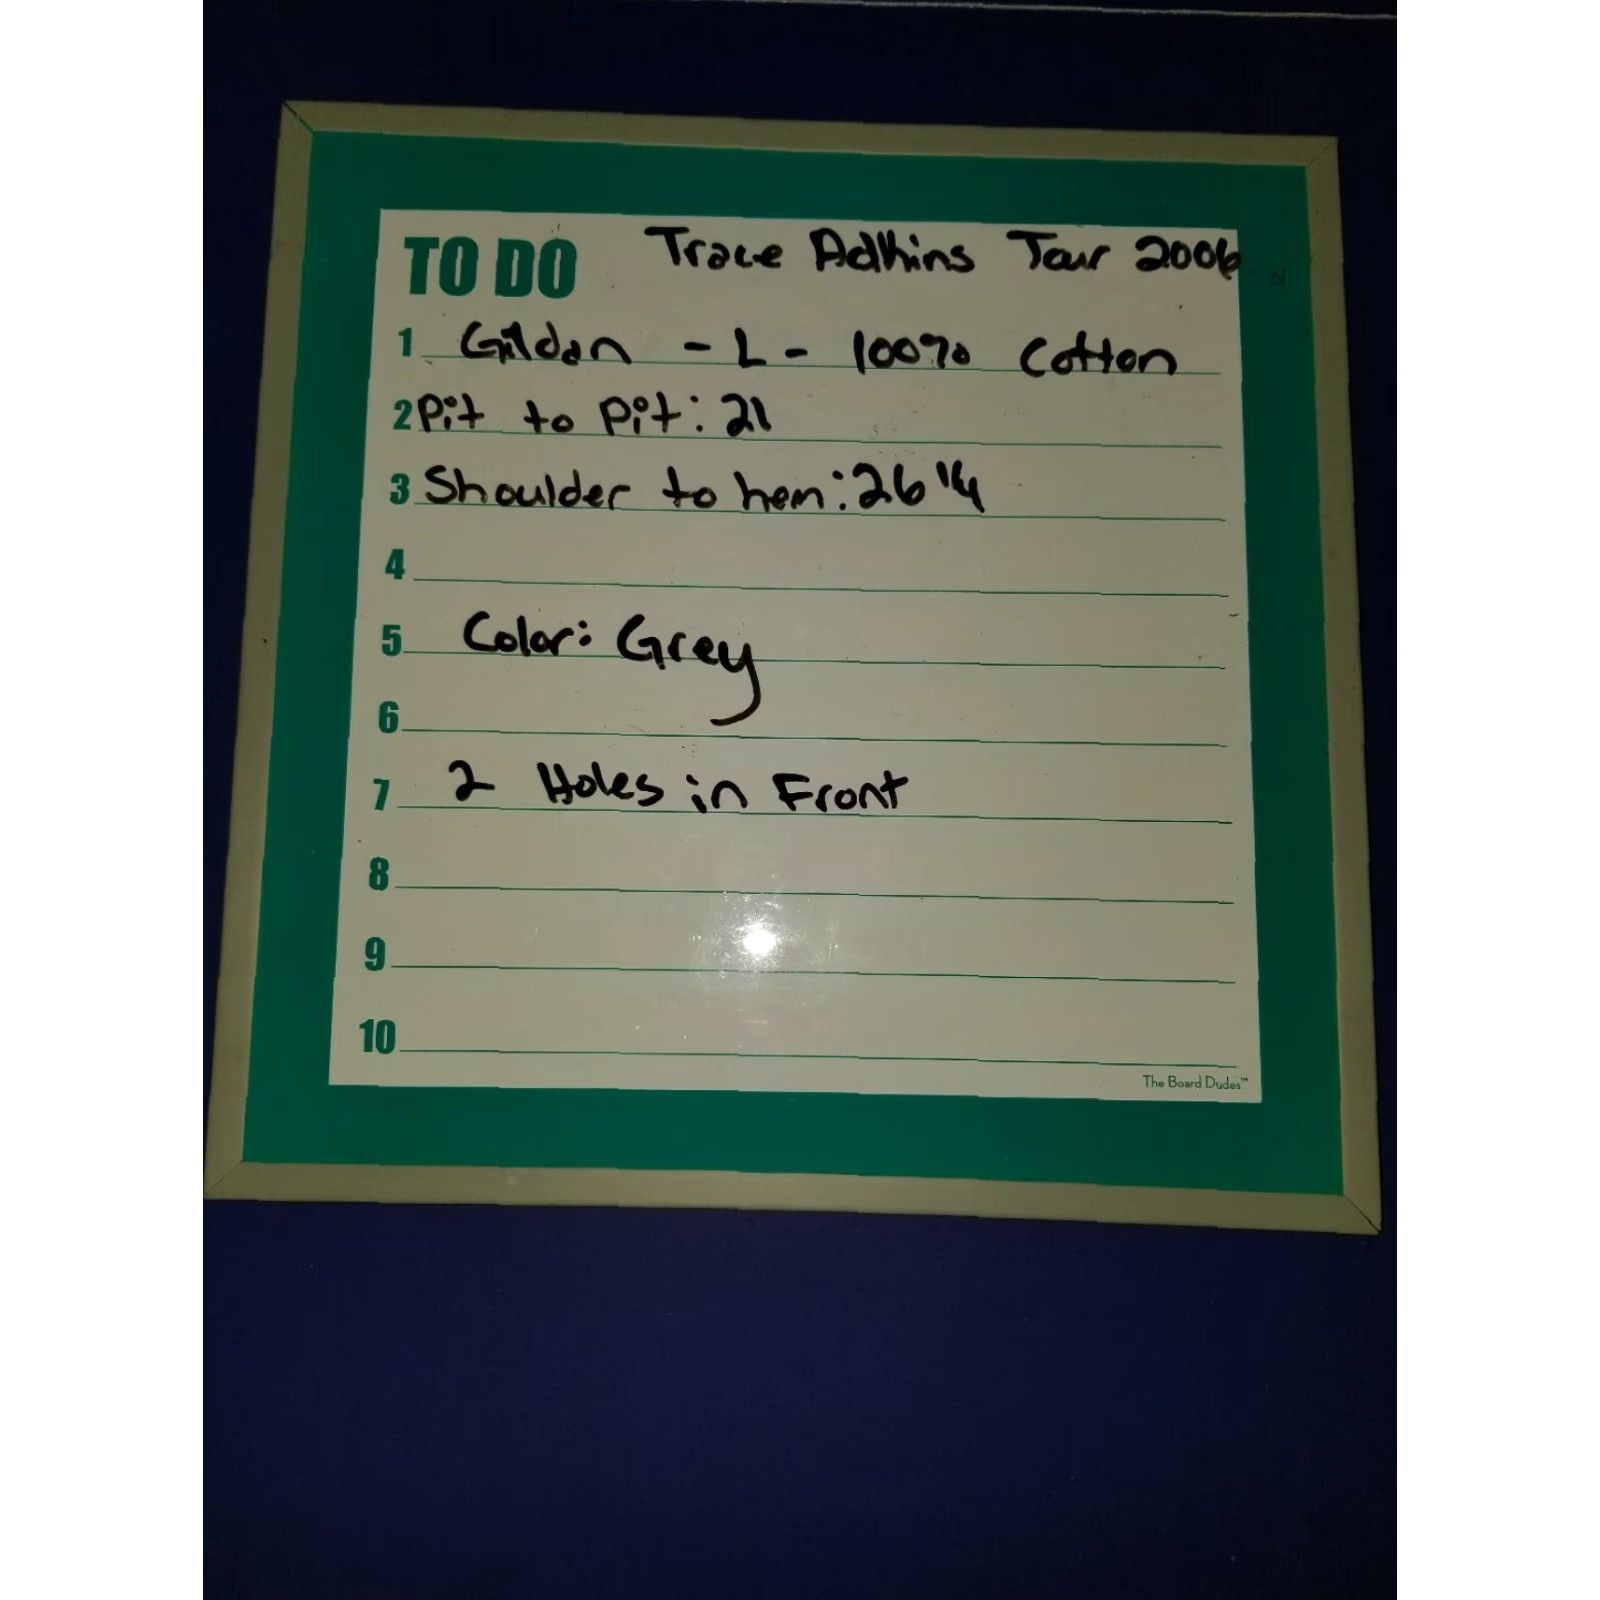 TO DO Trace Adkins Tour 2006
1 Gildan - L - 100% Cotton
2 Pit to Pit: 21
3 Shoulder to hem: 26 1/4
4
5 Color: Grey
6
7 2 Holes in Front
8
9
10
The Board Dudes™